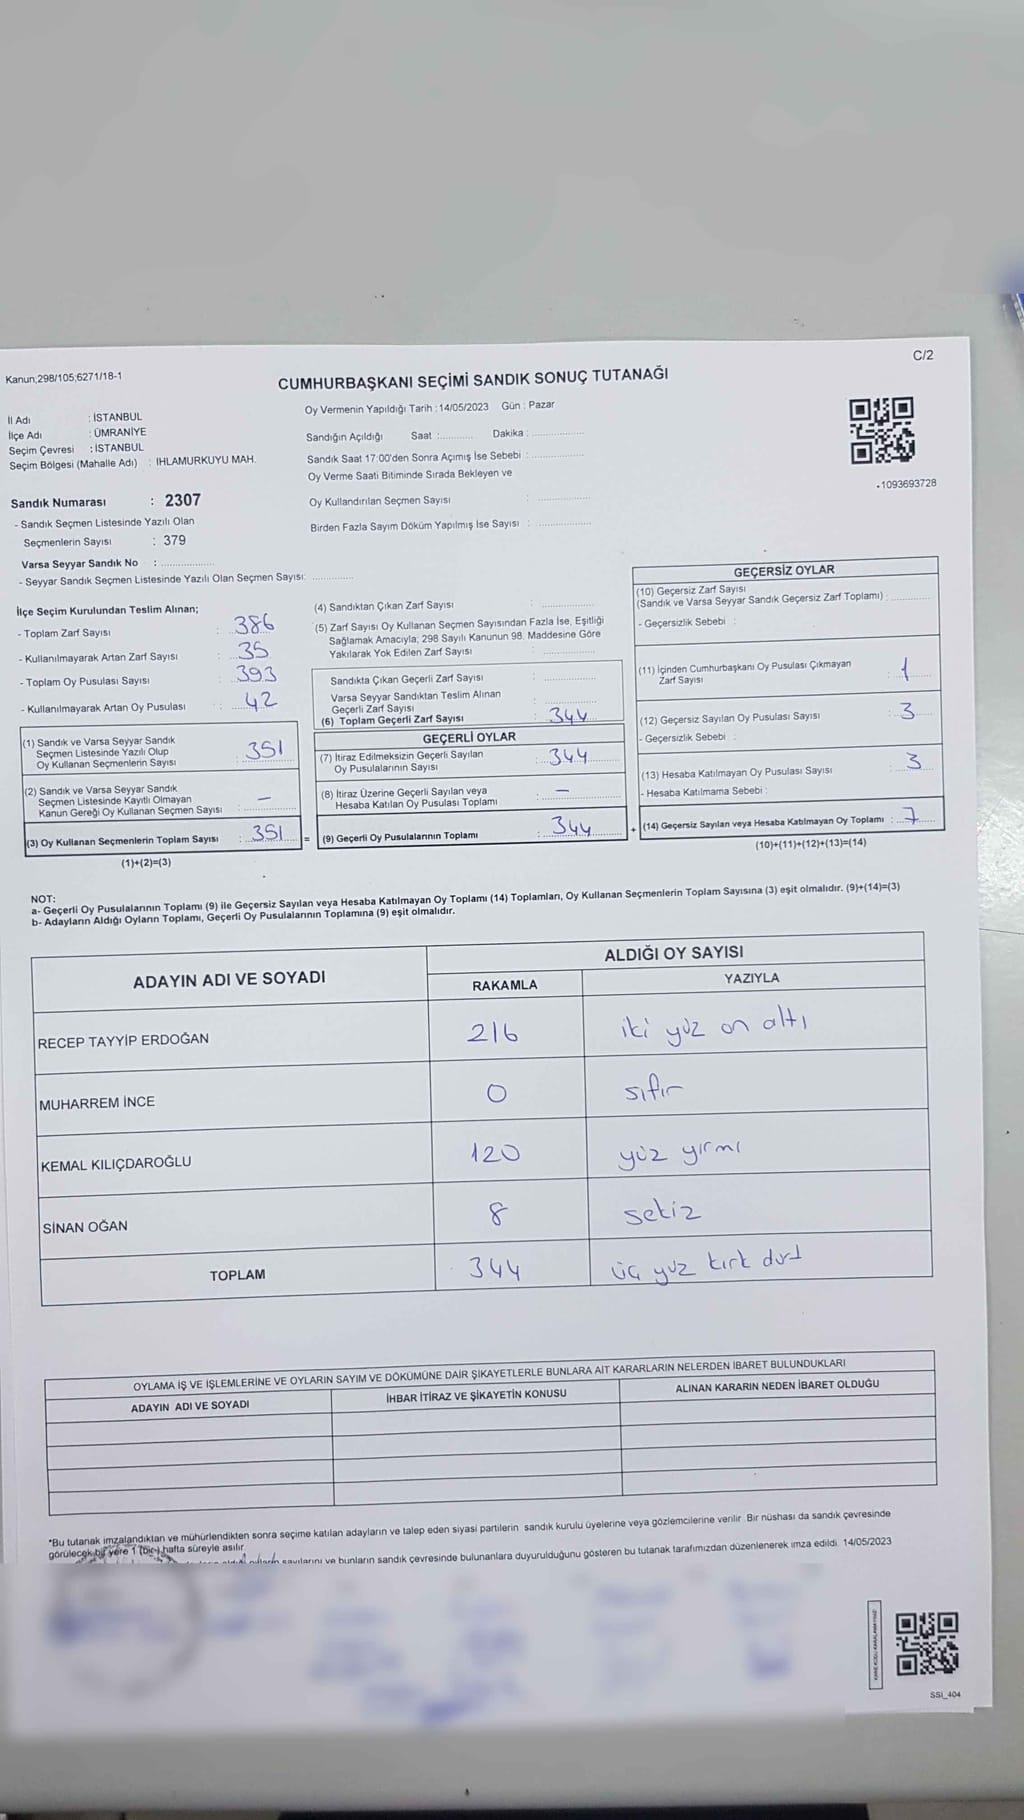 C/2
Kanun;298/105;6271/18-1
CUMHURBAŞKANI SEÇİMİ SANDIK SONUÇ TUTANAĞI
İl Adı : İSTANBUL
İlçe Adı : ÜMRANİYE
Seçim Çevresi : İSTANBUL
Seçim Bölgesi (Mahalle Adı) : IHLAMURKUYU MAH.
Sandık Numarası : 2307
- Sandık Seçmen Listesinde Yazılı Olan
Seçmenlerin Sayısı : 379
Varsa Seyyar Sandık No : ..................
- Seyyar Sandık Seçmen Listesinde Yazılı Olan Seçmen Sayısı: ..............
Oy Vermenin Yapıldığı Tarih : 14/05/2023 Gün : Pazar
Sandığın Açıldığı Saat :........... Dakika :..................
Sandık Saat 17:00'den Sonra Açımış İse Sebebi :..................
Oy Verme Saati Bitiminde Sırada Bekleyen ve
Oy Kullandırılan Seçmen Sayısı : ..................
Birden Fazla Sayım Döküm Yapılmış İse Sayısı : ..................
-1093693728
İlçe Seçim Kurulundan Teslim Alınan;
- Toplam Zarf Sayısı : 386
- Kullanılmayarak Artan Zarf Sayısı : 35
- Toplam Oy Pusulası Sayısı : 393
- Kullanılmayarak Artan Oy Pusulası : 42
(1) Sandık ve Varsa Seyyar Sandık
Seçmen Listesinde Yazılı Olup
Oy Kullanan Seçmenlerin Sayısı : 351
(2) Sandık ve Varsa Seyyar Sandık
Seçmen Listesinde Kayıtlı Olmayan
Kanun Gereği Oy Kullanan Seçmen Sayısı : –
(3) Oy Kullanan Seçmenlerin Toplam Sayısı : 351 =
(1)+(2)=(3)
(4) Sandıktan Çıkan Zarf Sayısı : ..............
(5) Zarf Sayısı Oy Kullanan Seçmen Sayısından Fazla İse, Eşitliği
Sağlamak Amacıyla; 298 Sayılı Kanunun 98. Maddesine Göre
Yakılarak Yok Edilen Zarf Sayısı : ..............
Sandıkta Çıkan Geçerli Zarf Sayısı : ..............
Varsa Seyyar Sandıktan Teslim Alınan
Geçerli Zarf Sayısı : ..............
(6) Toplam Geçerli Zarf Sayısı : 344
GEÇERLİ OYLAR
(7) İtiraz Edilmeksizin Geçerli Sayılan
Oy Pusulalarının Sayısı : 344
(8) İtiraz Üzerine Geçerli Sayılan veya
Hesaba Katılan Oy Pusulası Toplamı : –
(9) Geçerli Oy Pusulalarının Toplamı : 344 +
GEÇERSİZ OYLAR
(10) Geçersiz Zarf Sayısı
(Sandık ve Varsa Seyyar Sandık Geçersiz Zarf Toplamı) : ..............
- Geçersizlik Sebebi :
(11) İçinden Cumhurbaşkanı Oy Pusulası Çıkmayan
Zarf Sayısı : 1
(12) Geçersiz Sayılan Oy Pusulası Sayısı : 3
- Geçersizlik Sebebi :
(13) Hesaba Katılmayan Oy Pusulası Sayısı : 3
- Hesaba Katılmama Sebebi :
(14) Geçersiz Sayılan veya Hesaba Katılmayan Oy Toplamı : 7
(10)+(11)+(12)+(13)=(14)
NOT:
a- Geçerli Oy Pusulalarının Toplamı (9) ile Geçersiz Sayılan veya Hesaba Katılmayan Oy Toplamı (14) Toplamları, Oy Kullanan Seçmenlerin Toplam Sayısına (3) eşit olmalıdır. (9)+(14)=(3)
b- Adayların Aldığı Oyların Toplamı, Geçerli Oy Pusulalarının Toplamına (9) eşit olmalıdır.
ADAYIN ADI VE SOYADI ALDIĞI OY SAYISI
RAKAMLA YAZIYLA
RECEP TAYYİP ERDOĞAN 216 iki yüz on altı
MUHARREM İNCE 0 sıfır
KEMAL KILIÇDAROĞLU 120 yüz yirmi
SİNAN OĞAN 8 sekiz
TOPLAM 344 üç yüz kırk dört
OYLAMA İŞ VE İŞLEMLERİNE VE OYLARIN SAYIM VE DÖKÜMÜNE DAİR ŞİKAYETLERLE BUNLARA AİT KARARLARIN NELERDEN İBARET BULUNDUKLARI
ADAYIN ADI VE SOYADI İHBAR İTİRAZ VE ŞİKAYETİN KONUSU ALINAN KARARIN NEDEN İBARET OLDUĞU
*Bu tutanak imzalandıktan ve mühürlendikten sonra seçime katılan adayların ve talep eden siyasi partilerin sandık kurulu üyelerine veya gözlemcilerine verilir. Bir nüshası da sandık çevresinde
görülecek bir yere 1 (bir) hafta süreyle asılır.
sayılarını ve bunların sandık çevresinde bulunanlara duyurulduğunu gösteren bu tutanak tarafımızdan düzenlenerek imza edildi. 14/05/2023
SSI_404